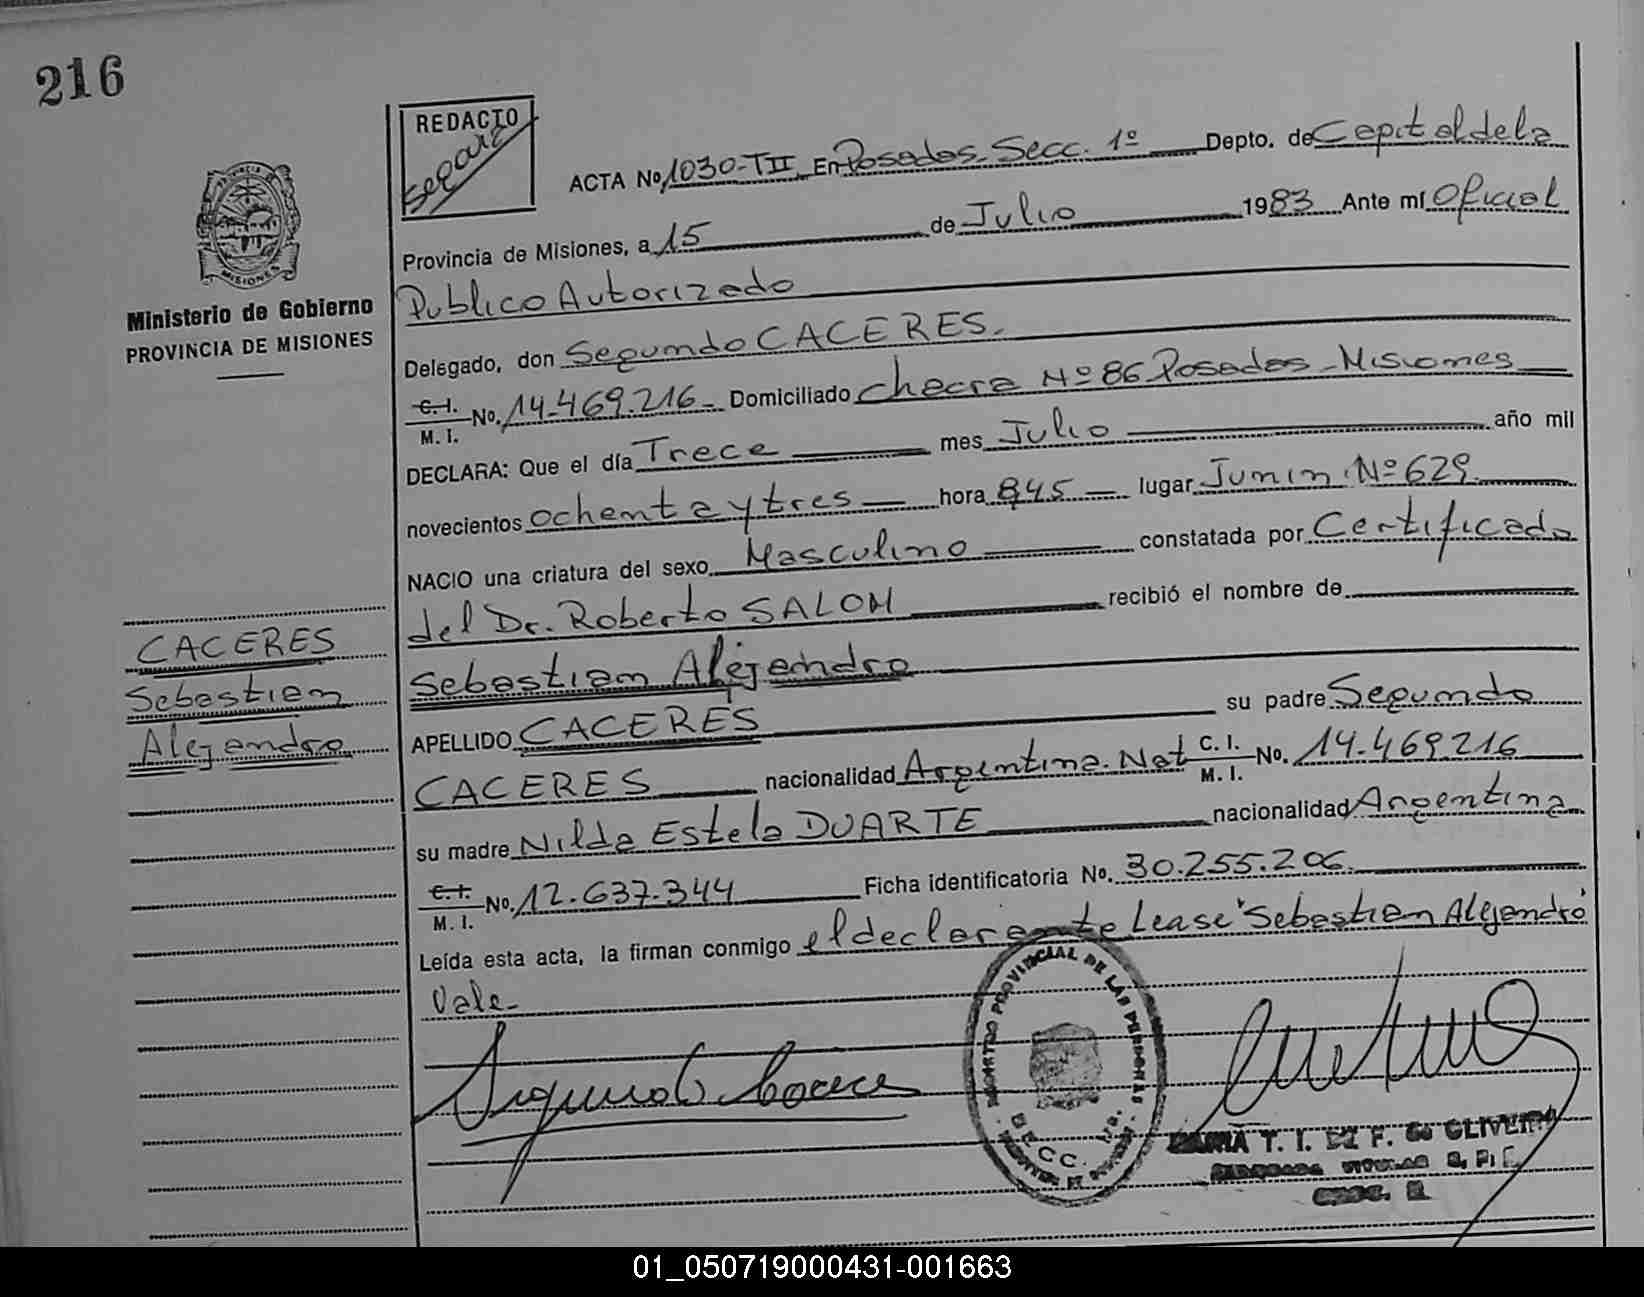 216
REDACTO
ACTA No 1030-TII En Posadas Secc. 1º Depto. de Capital de la
Provincia de Misiones, a 15 de Julio 1983 Ante mí Oficial
Publico Autorizado
MISIONES
Ministerio de Gobierno
PROVINCIA DE MISIONES
Delegado, don Segundo CACERES.
C. I. M. I. No. 14.469.216 Domiciliado Chacra Nº 86 Posadas - Misiones
DECLARA: Que el día Trece mes Julio año mil
novecientos ochenta y tres hora 845 lugar Junin Nº 629
NACIO una criatura del sexo Masculino constatada por Certificado
del Dr. Roberto SALOM recibió el nombre de
Sebastian Alejandro
CACERES
Sebastian
Alejandro
APELLIDO CACERES su padre Segundo
CACERES nacionalidad Argentina Nat C. I. M. I. No. 14.469.216
su madre Nilda Estela DUARTE nacionalidad Argentina
C. I. M. I. No. 12.637.344 Ficha identificatoria No. 30.255.206
Leída esta acta, la firman conmigo el declarante Lease "Sebastian Alejandro"
Vale-
Segundo Caceres
PROVINCIAL DE LAS PERSONAS
T. I. DE F. de OLIVEIRA
01_050719000431-001663